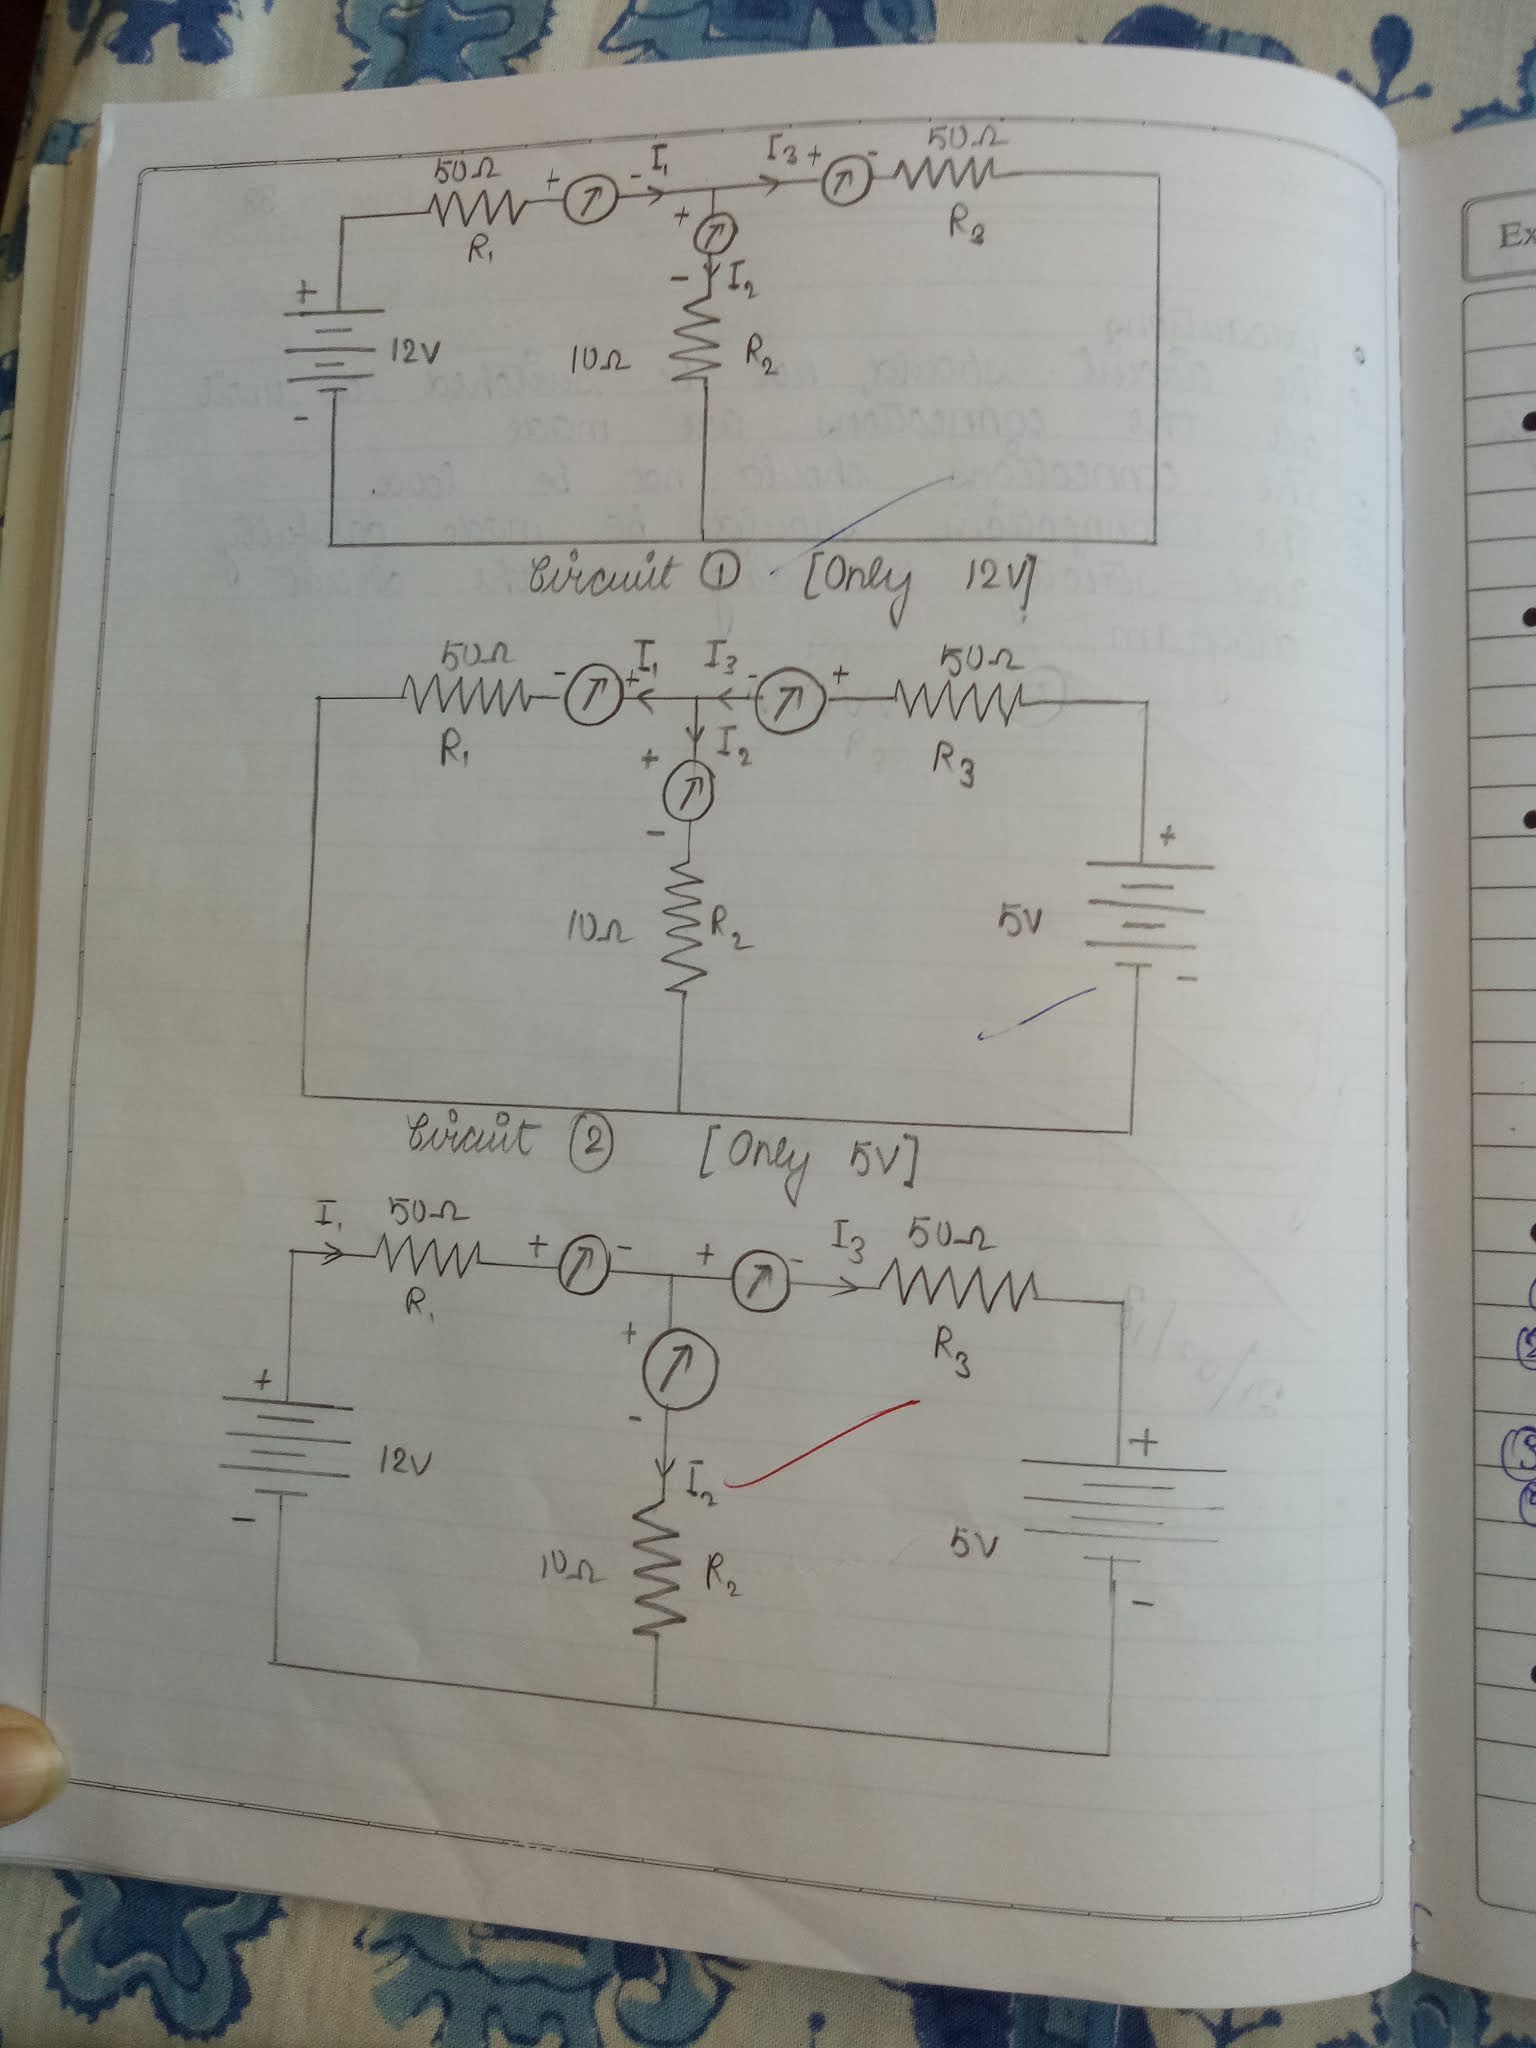 50Ω + - I₁ I₃ + - 50Ω
R₁ + R₃
+ - I₂
12V 10Ω R₂
-
Circuit ① [Only 12V]
50Ω - + I₁ I₃ - + 50Ω
R₁ + I₂ R₃
- +
10Ω R₂ 5V
-
Circuit ② [Only 5V]
I₁ 50Ω + - + - I₃ 50Ω
R₁ + R₃
+ - +
12V I₂
- 10Ω R₂ 5V
-
Ex